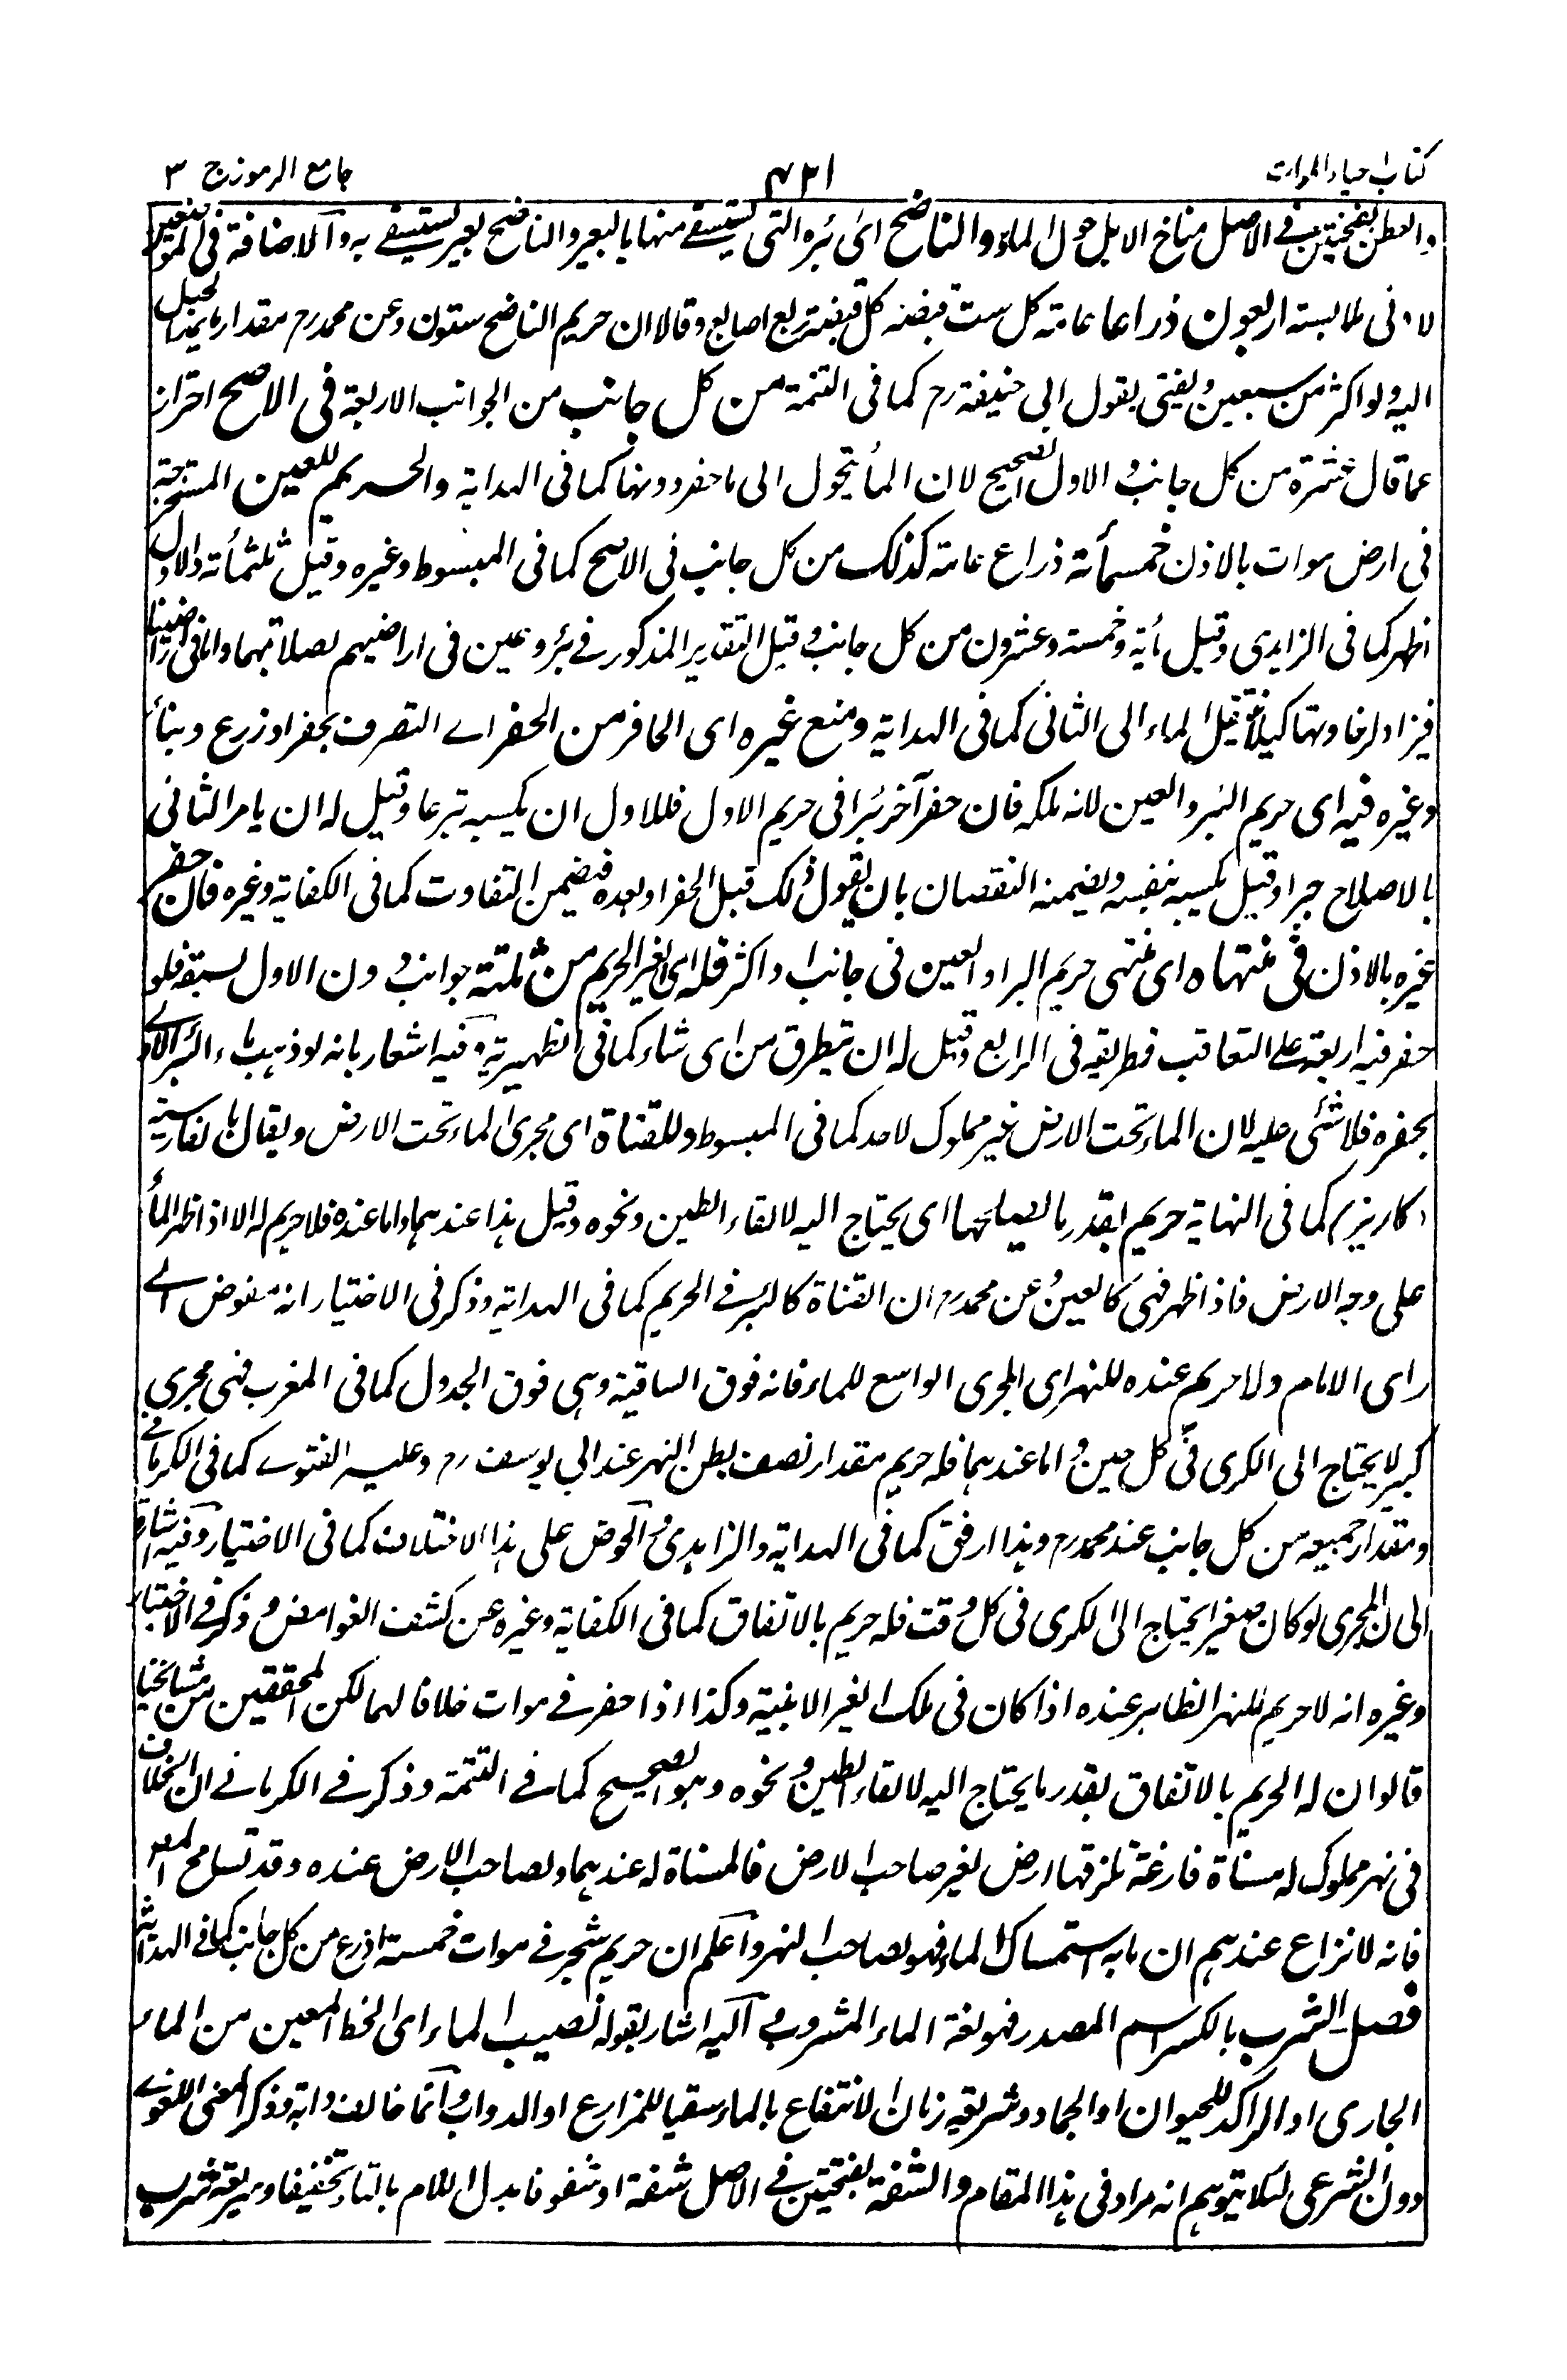 كتاب احياء الموات
٤٢١
جامع الرموز ج ٣
والعطن بفتحتين فى الاصل مناخ الابل حول الماء والناضح اى بئره التى يستسقى منها بالبعير والناضح بعير يستسقى به والاضافة فى الموضعين
لادنى ملابسته اربعون ذراعا عامة كل ست قبضة كل قبضة اربع اصابع وقالا ان حريم الناضح ستون وعن محمد رح مقدار ما يمتد الحبل
اليه ولو اكثر من سبعين ويفتى بقول ابى حنيفة رح كما فى التتمة من كل جانب من الجوانب الاربعة فى الاصح احتراز
عما قال عشرة من كل جانب والاول الصحيح لان الماء يتحول الى ما حفر دونها كما فى الهداية والحريم للعين المستخرجة
فى ارض موات بالاذن خمسمأة ذراع عامة كذلك من كل جانب فى الاصح كما فى المبسوط وغيره وقيل ثلثمأة والاول
اظهر كما فى الزاهدى وقيل مأية وخمسة وعشرون من كل جانب وقيل التقدير المذكور فى بئر وعين فى اراضيهم لصلابتهما واما فى اراضينا
فيزاد لرخاوتها كيلا ينتقل الماء الى الثانى كما فى الهداية ومنع غيره اى الحافر من الحفر اى التصرف بحفر او زرع وبناء
وغيره فيه اى حريم البئر والعين لانه ملكه فان حفر آخر بئرا فى حريم الاول فللاول ان يكبسه تبرعا وقيل له ان يامر الثانى
بالاصلاح جبرا وقيل يكبسه بنفسه ويضمنه النقصان بان يقول ذلك قبل الحفر او بعده فيضمن التفاوت كما فى الكفاية وغيره فان حفر
غيره بالاذن فى منتهاه اى منتهى حريم البئر او العين فى جانب او اكثر فله اى لغير الحريم من ثلثة جوانب دون الاول لسبقه فلو
حفر فيه اربعة على التعاقب فطريقه فى الرابع وقيل له ان يتطرق من اى شاء كما فى الظهيرية وفيه اشعار بانه لو ذهب ماء البئر الاول
بحفره فلا شئى عليه لان الماء تحت الارض غير مملوك لاحد كما فى المبسوط وللقناة اى مجرى الماء تحت الارض ويقال بالفارسية
كاريز كما فى النهاية حريم بقدر ما يصلحها اى يحتاج اليه لالقاء الطين ونحوه وقيل هذا عندهما واما عنده فلا حريم له الا اذا ظهر الماء
على وجه الارض فاذا ظهر فهى كالعين وعن محمد رح ان القناة كالبئر فى الحريم كما فى الهداية وذكر فى الاختيار انه مفوض الى
راى الامام ولا حريم عنده للنهر اى المجرى الواسع للماء فانه فوق الساقية وهى فوق الجدول كما فى المغرب فهى مجرى
كبير لا يحتاج الى الكرى فى كل حين واما عندهما فله حريم مقدار نصف بطن النهر عند ابي يوسف رح وعليه الفتوى كما فى الكرمانى
ومقدار جميعه من كل جانب عند محمد رح وهذا ارفق كما فى الهداية والزاهدى والحوض على هذا الاختلاف كما فى الاختيار وفيه اشارة
الى ان المجرى لو كان صغيرا يحتاج الى الكرى فى كل وقت فله حريم بالاتفاق كما فى الكفاية وغيره عن كشف الغوامض وذكر فى الاختيار
وغيره انه لا حريم للنهر الظاهر عنده اذا كان فى ملك الغير الا ببينة وكذا اذا حفر فى موات خلافا لهما لكن المحققين من مشايخنا
قالوا ان له الحريم بالاتفاق بقدر ما يحتاج اليه لالقاء الطين ونحوه وهو الصحيح كما فى التتمة وذكر فى الكرمانى ان الخلاف
فى نهر مملوك له مسناة فارغة يلزقها ارض لغير صاحب الارض فالمسناة له عندهما ولصاحب الارض عنده وقد تسامح المص
فانه لا نزاع عندهم ان ما به استمساك الماء فهو لصاحب النهر واعلم ان حريم شجر فى موات خمسة اذرع من كل جانب كما فى الهداية
فصل الشرب بالكسر اسم المصدر فهو لغة الماء المشروب واليه اشار بقوله نصيب الماء اى الحظ المعين من الماء
الجارى او الراكد للحيوان او الجماد وشريعة زمان الانتفاع بالماء سقيا للمزارع او الدواب وانما خالف دابه وذكر المعنى اللغوى
دون الشرعى لئلا يتوهم انه مراد فى هذا المقام والشفة بفتحتين فى الاصل شفة او شفو فابدل اللام بالتاء تخفيفا وشريعة شرب